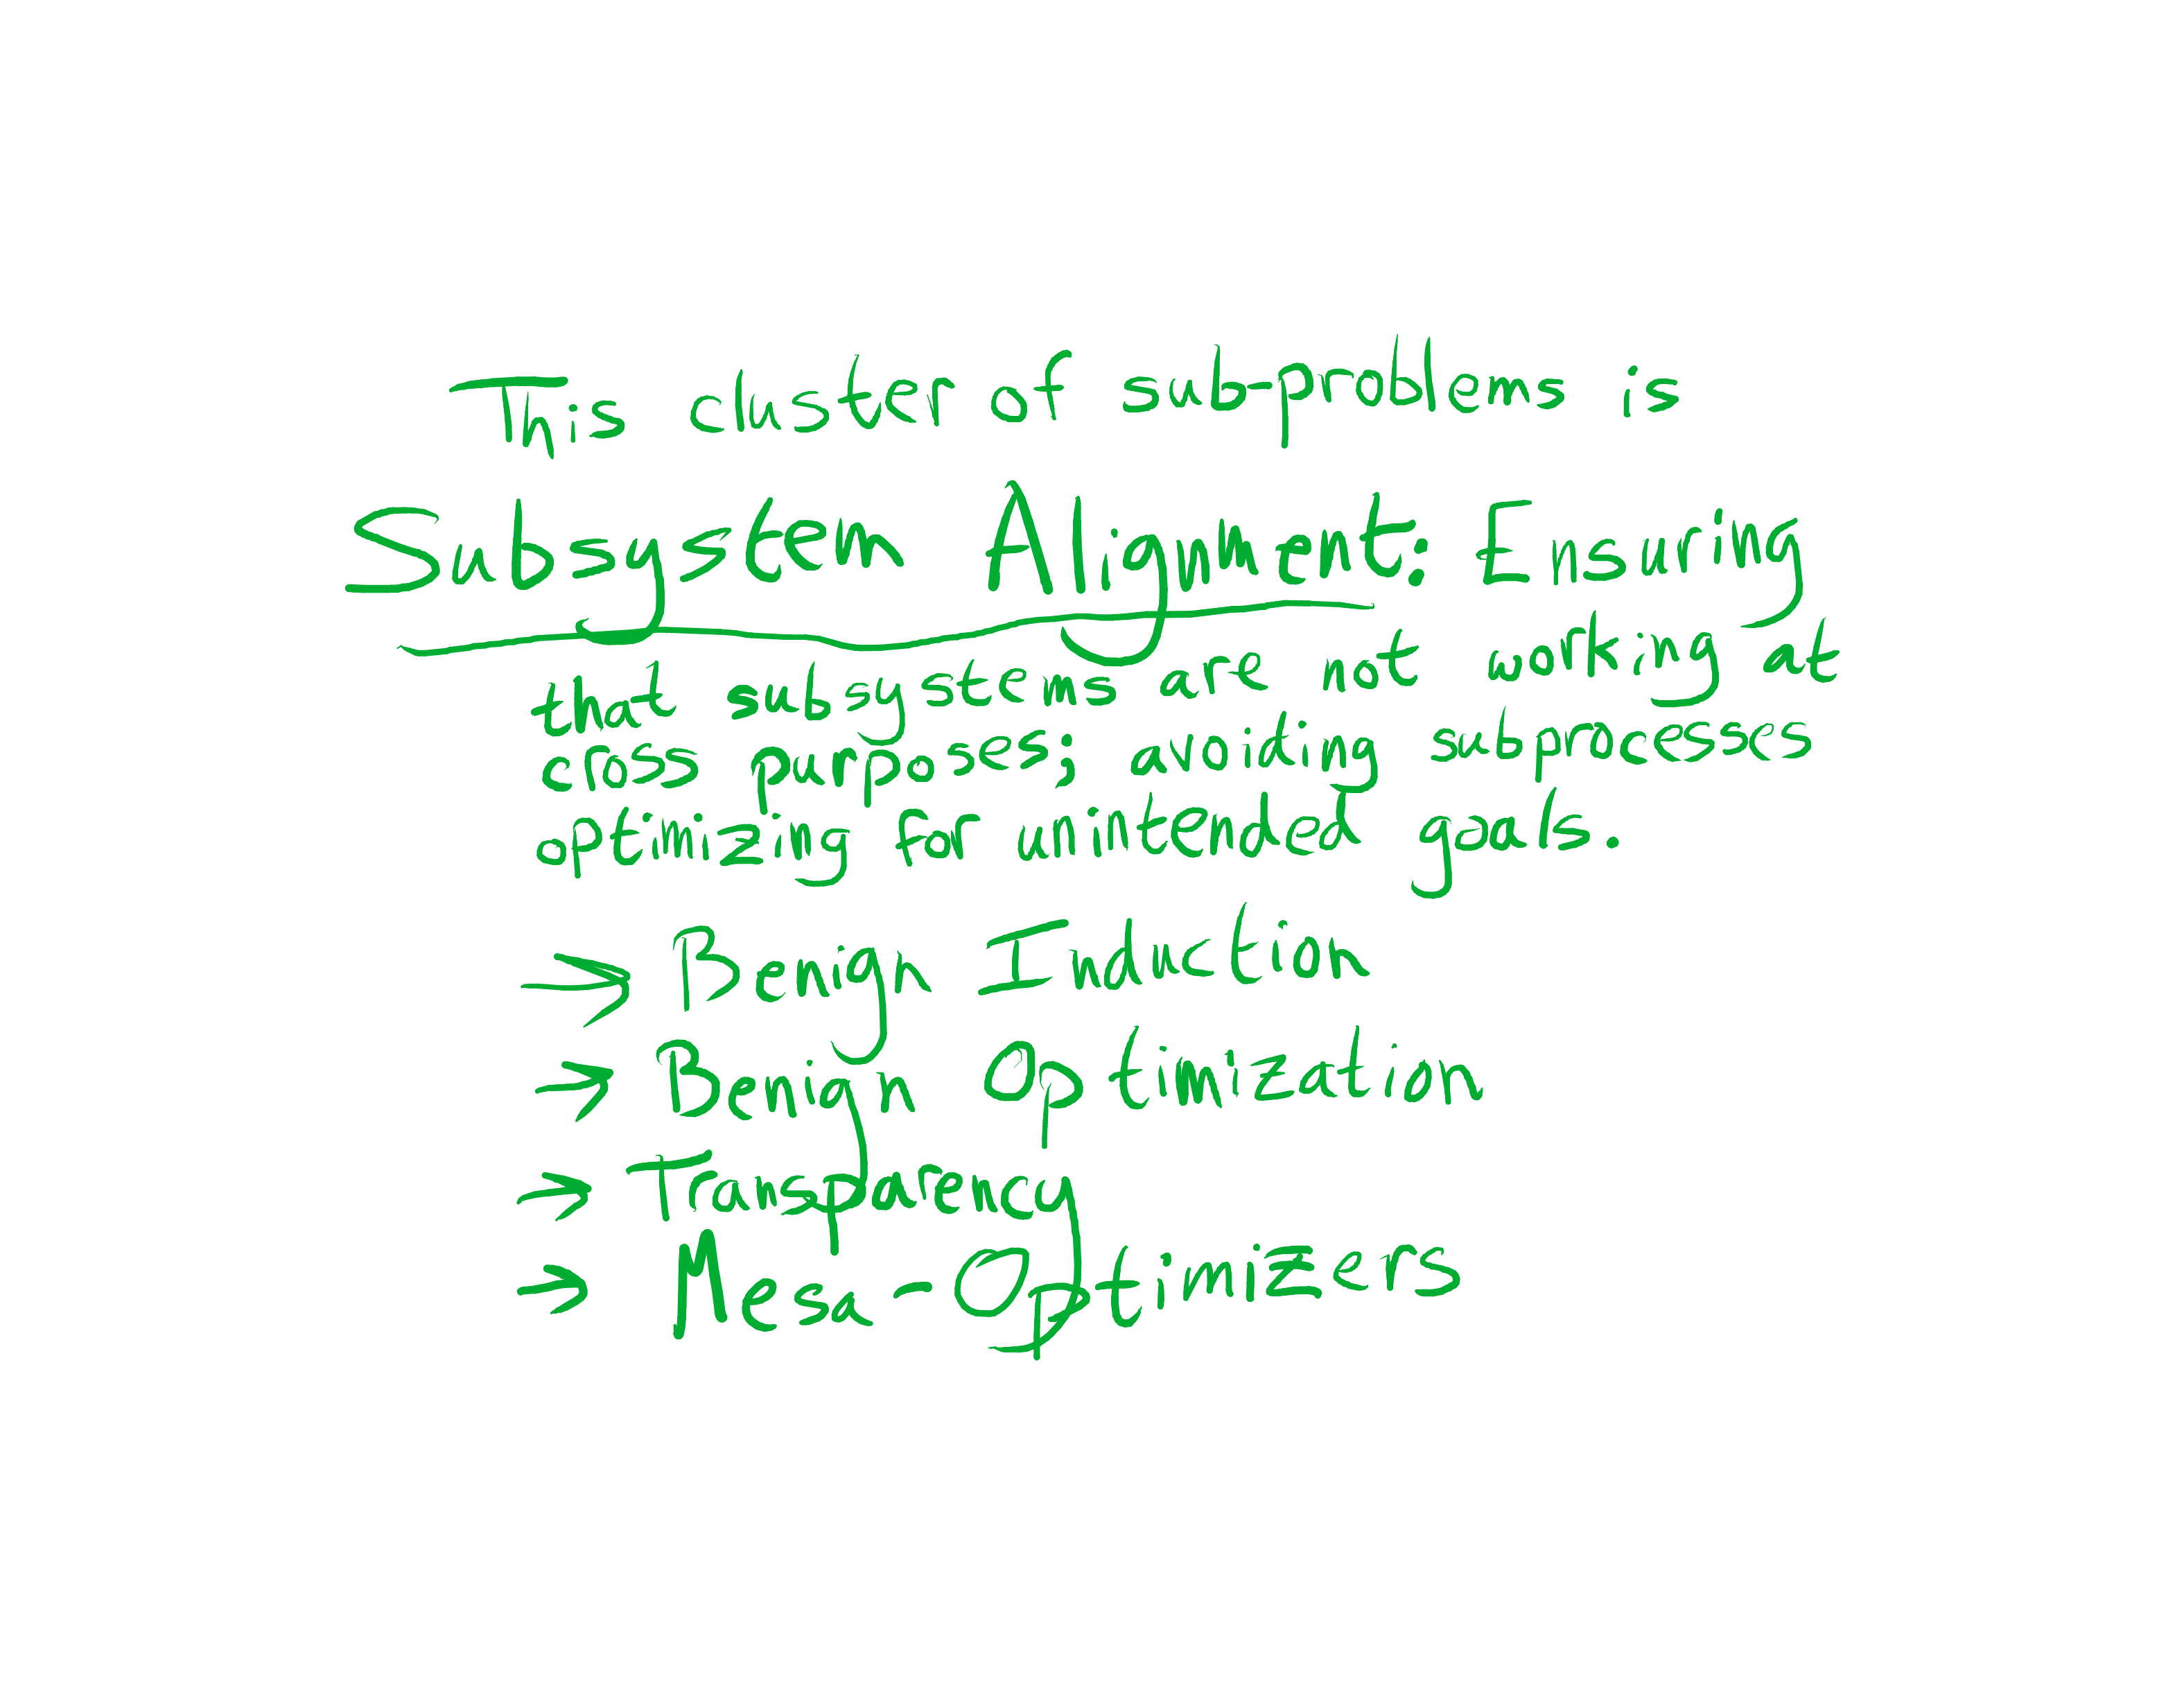 This cluster of sub-problems is
Subsystem Alignment: Ensuring
that subsystems are not working at
cross purposes; avoiding subprocesses
optimizing for unintended goals.
→ Benign Induction
→ Benign Optimization
→ Transparency
→ Mesa-Optimizers